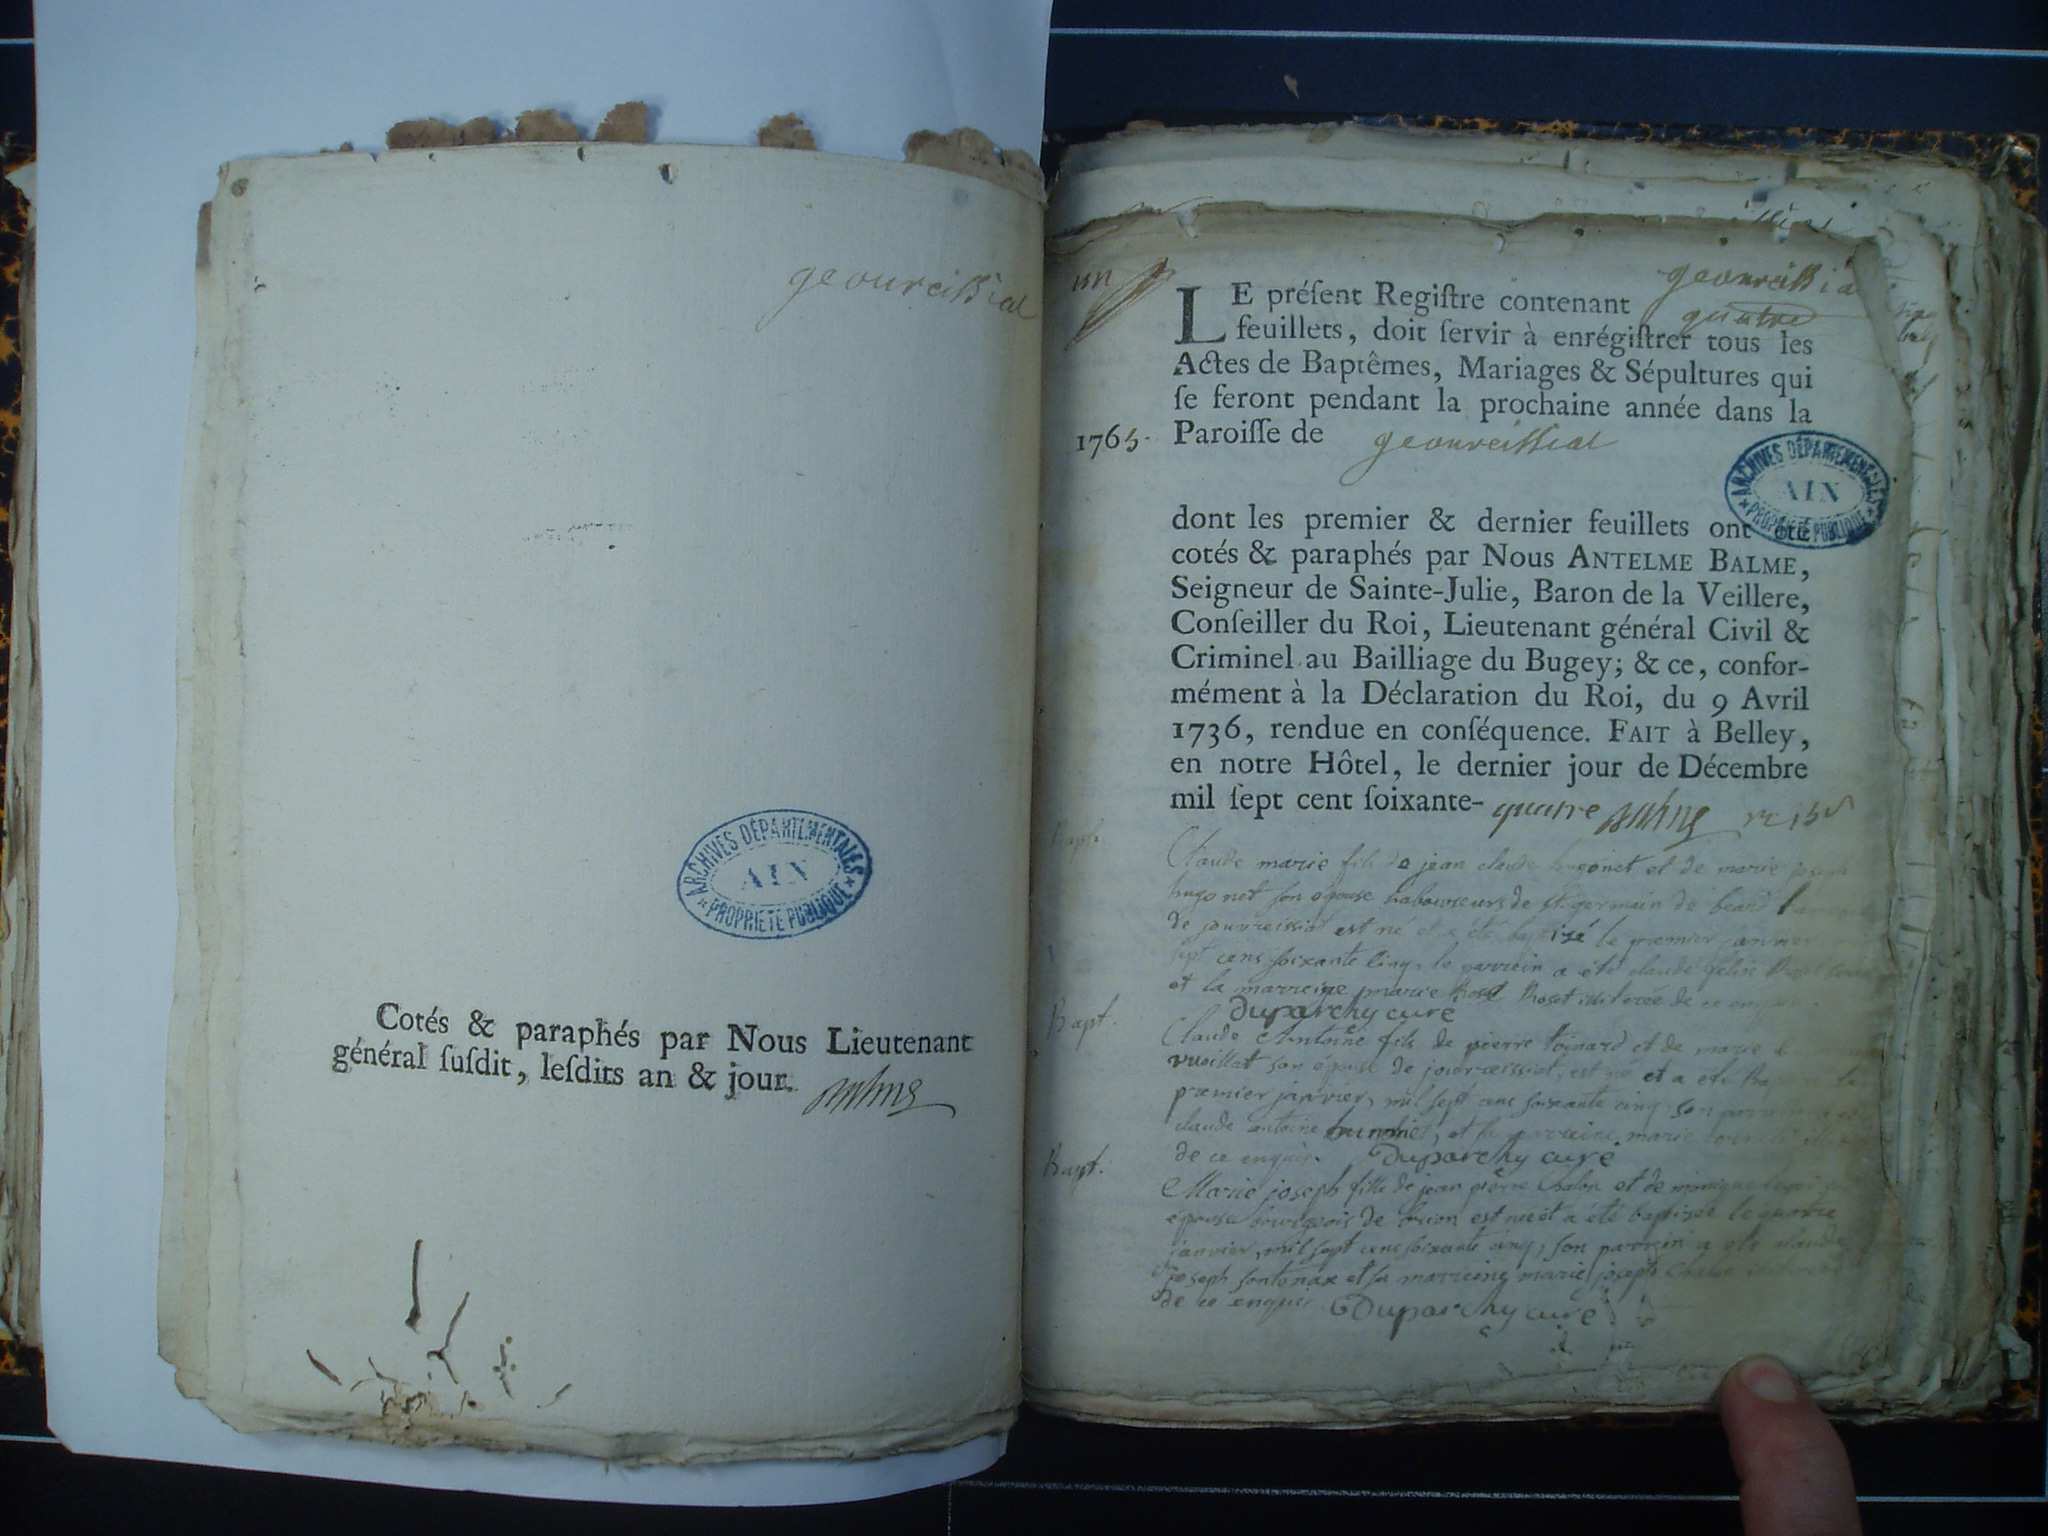 geoureissiat
ARCHIVES DÉPARTEMENTALES
AIN
PROPRIÉTÉ PUBLIQUE
Cotés & paraphés par Nous Lieutenant
général ſuſdit, leſdits an & jour.
un
geoureissia
LE préſent Regiſtre contenant quatre
feuillets, doit ſervir à enrégiſtrer tous les
Actes de Baptêmes, Mariages & Sépultures qui
ſe feront pendant la prochaine année dans la
1765. Paroiſſe de geoureissiat
ARCHIVES DÉPARTEMENTALES
AIN
PROPRIÉTÉ PUBLIQUE
dont les premier & dernier feuillets ont été
cotés & paraphés par Nous ANTELME BALME,
Seigneur de Sainte-Julie, Baron de la Veillere,
Conſeiller du Roi, Lieutenant général Civil &
Criminel au Bailliage du Bugey; & ce, confor-
mément à la Déclaration du Roi, du 9 Avril
1736, rendue en conſéquence. FAIT à Belley,
en notre Hôtel, le dernier jour de Décembre
mil ſept cent ſoixante-quatre
Bapt.
Claude marie fils de jean claude hugonet et de marie
hugonet son epouse laboureurs de st germain de beard
de jouvreissiat est né et a été baptisé le premier janvier
sept cens soixante cinq, le parrein a été claude
et la marreine marie Rose Roset de ce enquis.
Duparchy curé
Bapt.
Claude Antoine fils de pierre toinard et de marie
vuoillat son épouse de jouvreissiat, est né et a été
premier janvier, mil sept cens soixante cinq son parrein
claude antoine et sa marreine marie
de ce enquis. Duparchy curé
Bapt.
Marie joseph fille de jean pierre Chalon et de monique
épouse bourgeois de est née et a été baptisée le quatre
janvier, mil sept cens soixante cinq, son parrein a été claude
joseph sontonax et sa marreine marie joseph
de ce enquis Duparchy curé